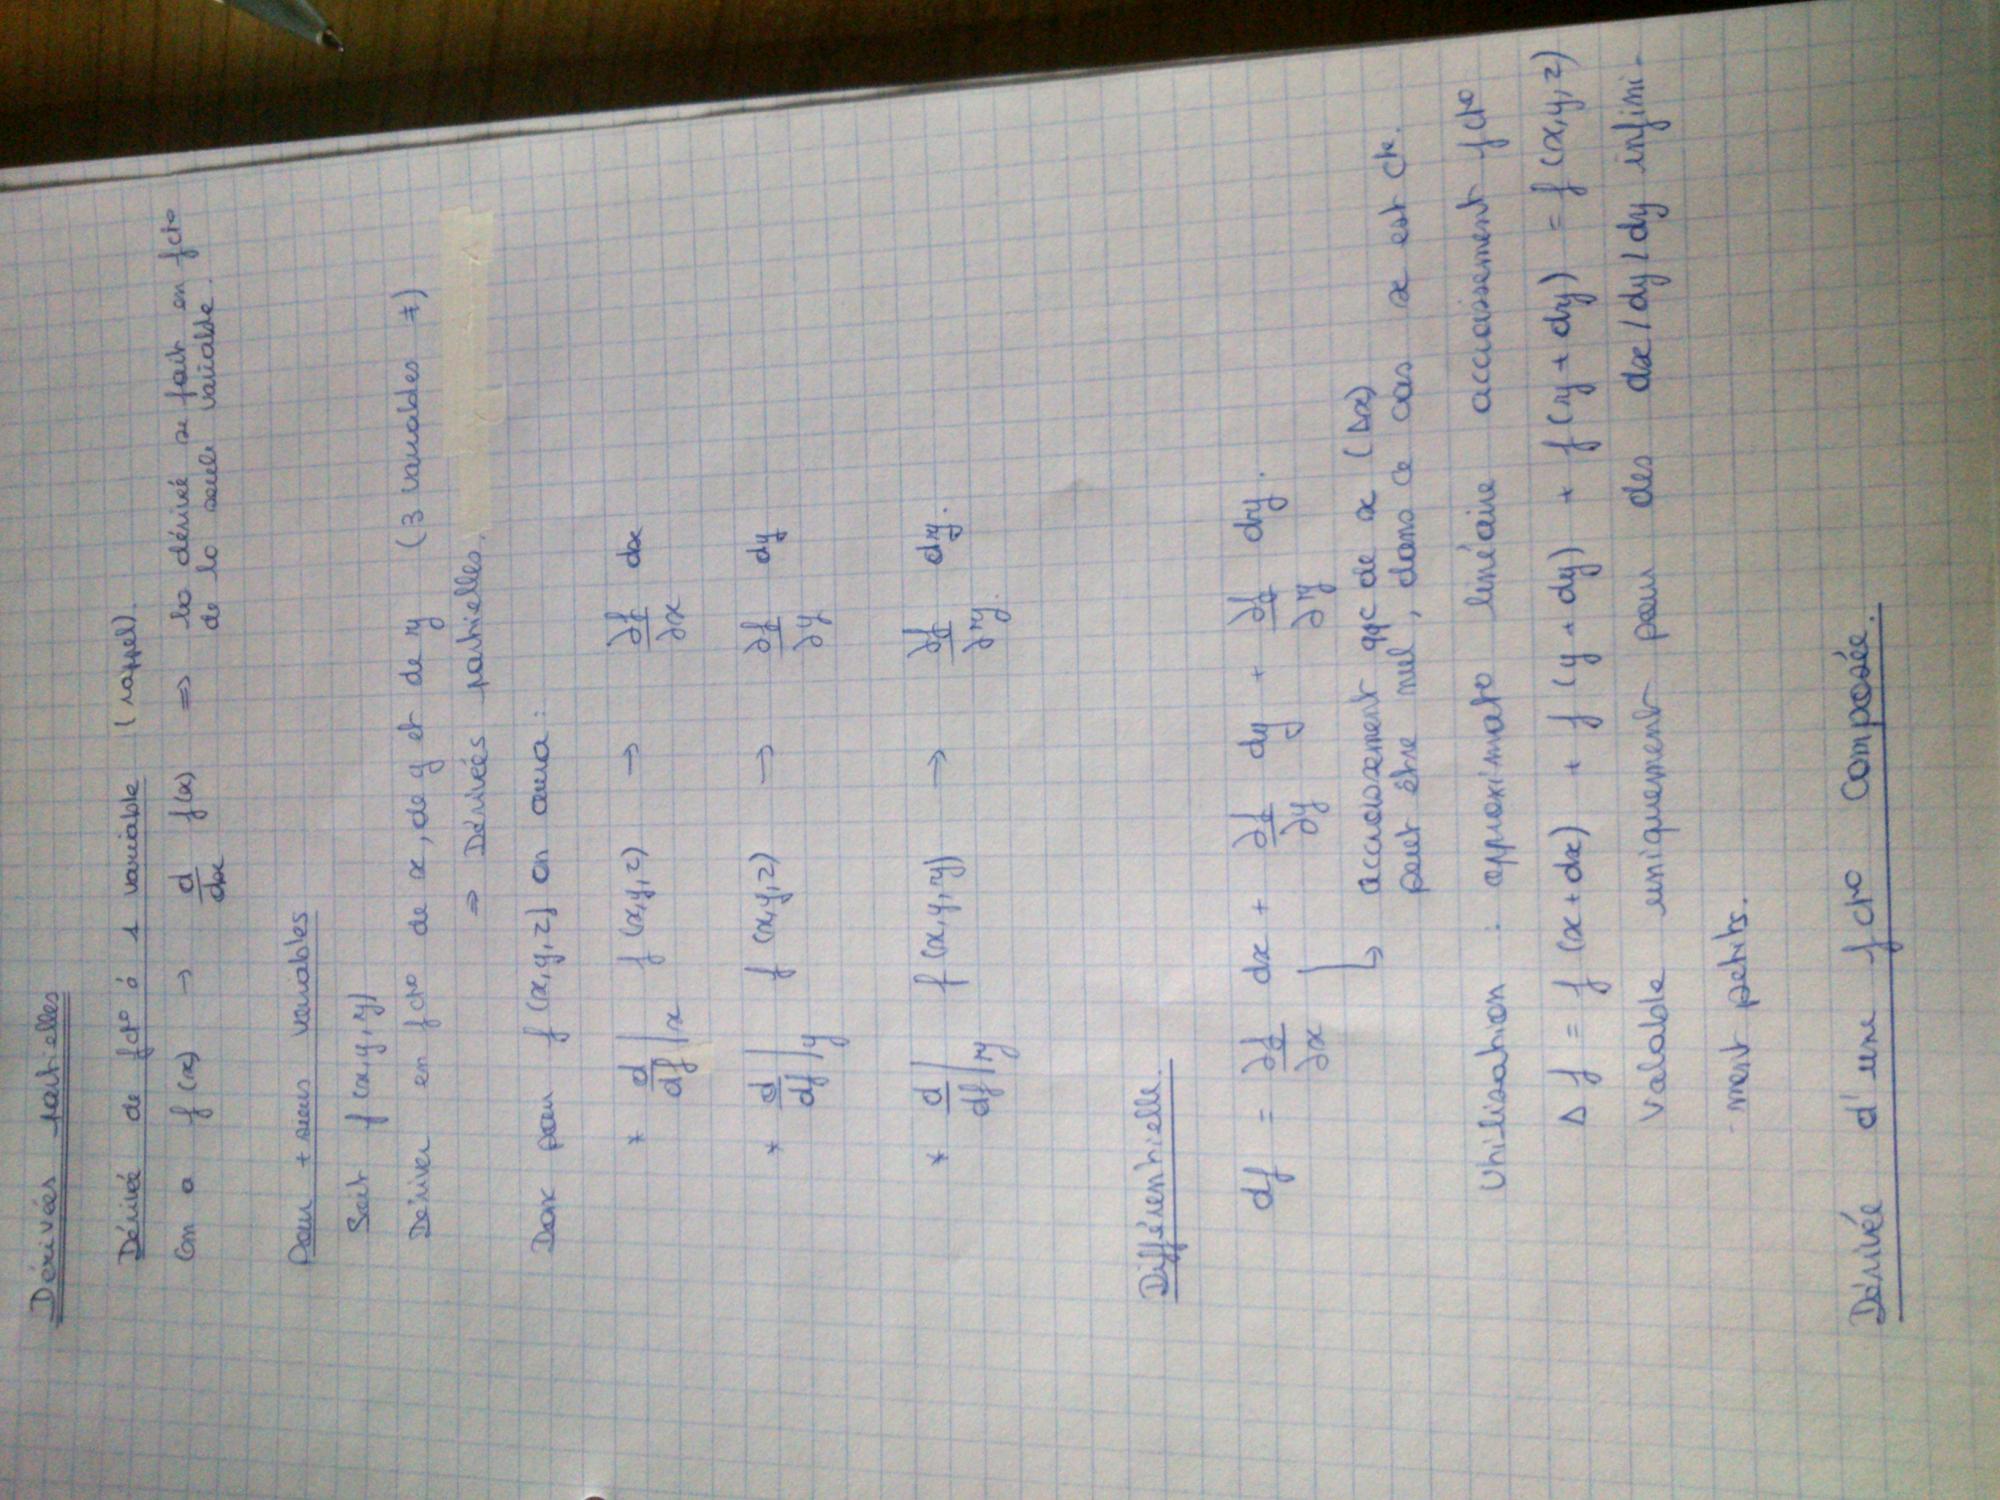 Dérivées partielles
Dérivée de fcto à 1 variable (rappel).
On a f(x) → d/dx f(x) ⇒ la dérivée se fait en fcto
de la seule variable.
Pour + sieurs variables
Soit f(x,y,z)
Dériver en fcto de x, de y et de z (3 variables ≠)
⇒ Dérivées partielles.
Donc pour f(x,y,z) on aura :
* d/df|x f(x,y,z) → ∂f/∂x dx
* d/df|y f(x,y,z) → ∂f/∂y dy
* d/df|z f(x,y,z) → ∂f/∂z dz.
Différentielle.
df = ∂f/∂x dx + ∂f/∂y dy + ∂f/∂z dz.
↳ accroissement qqc de x (Δx)
peut être nul, dans ce cas x est cte.
Utilisation : approximato linéaire accroissement fcto
Δf = f(x+dx) + f(y+dy) + f(z+dz) = f(x,y,z)
Valable uniquement pour des dx/dy/dz infini-
ment petits.
Dérivée d'une fcto composée.